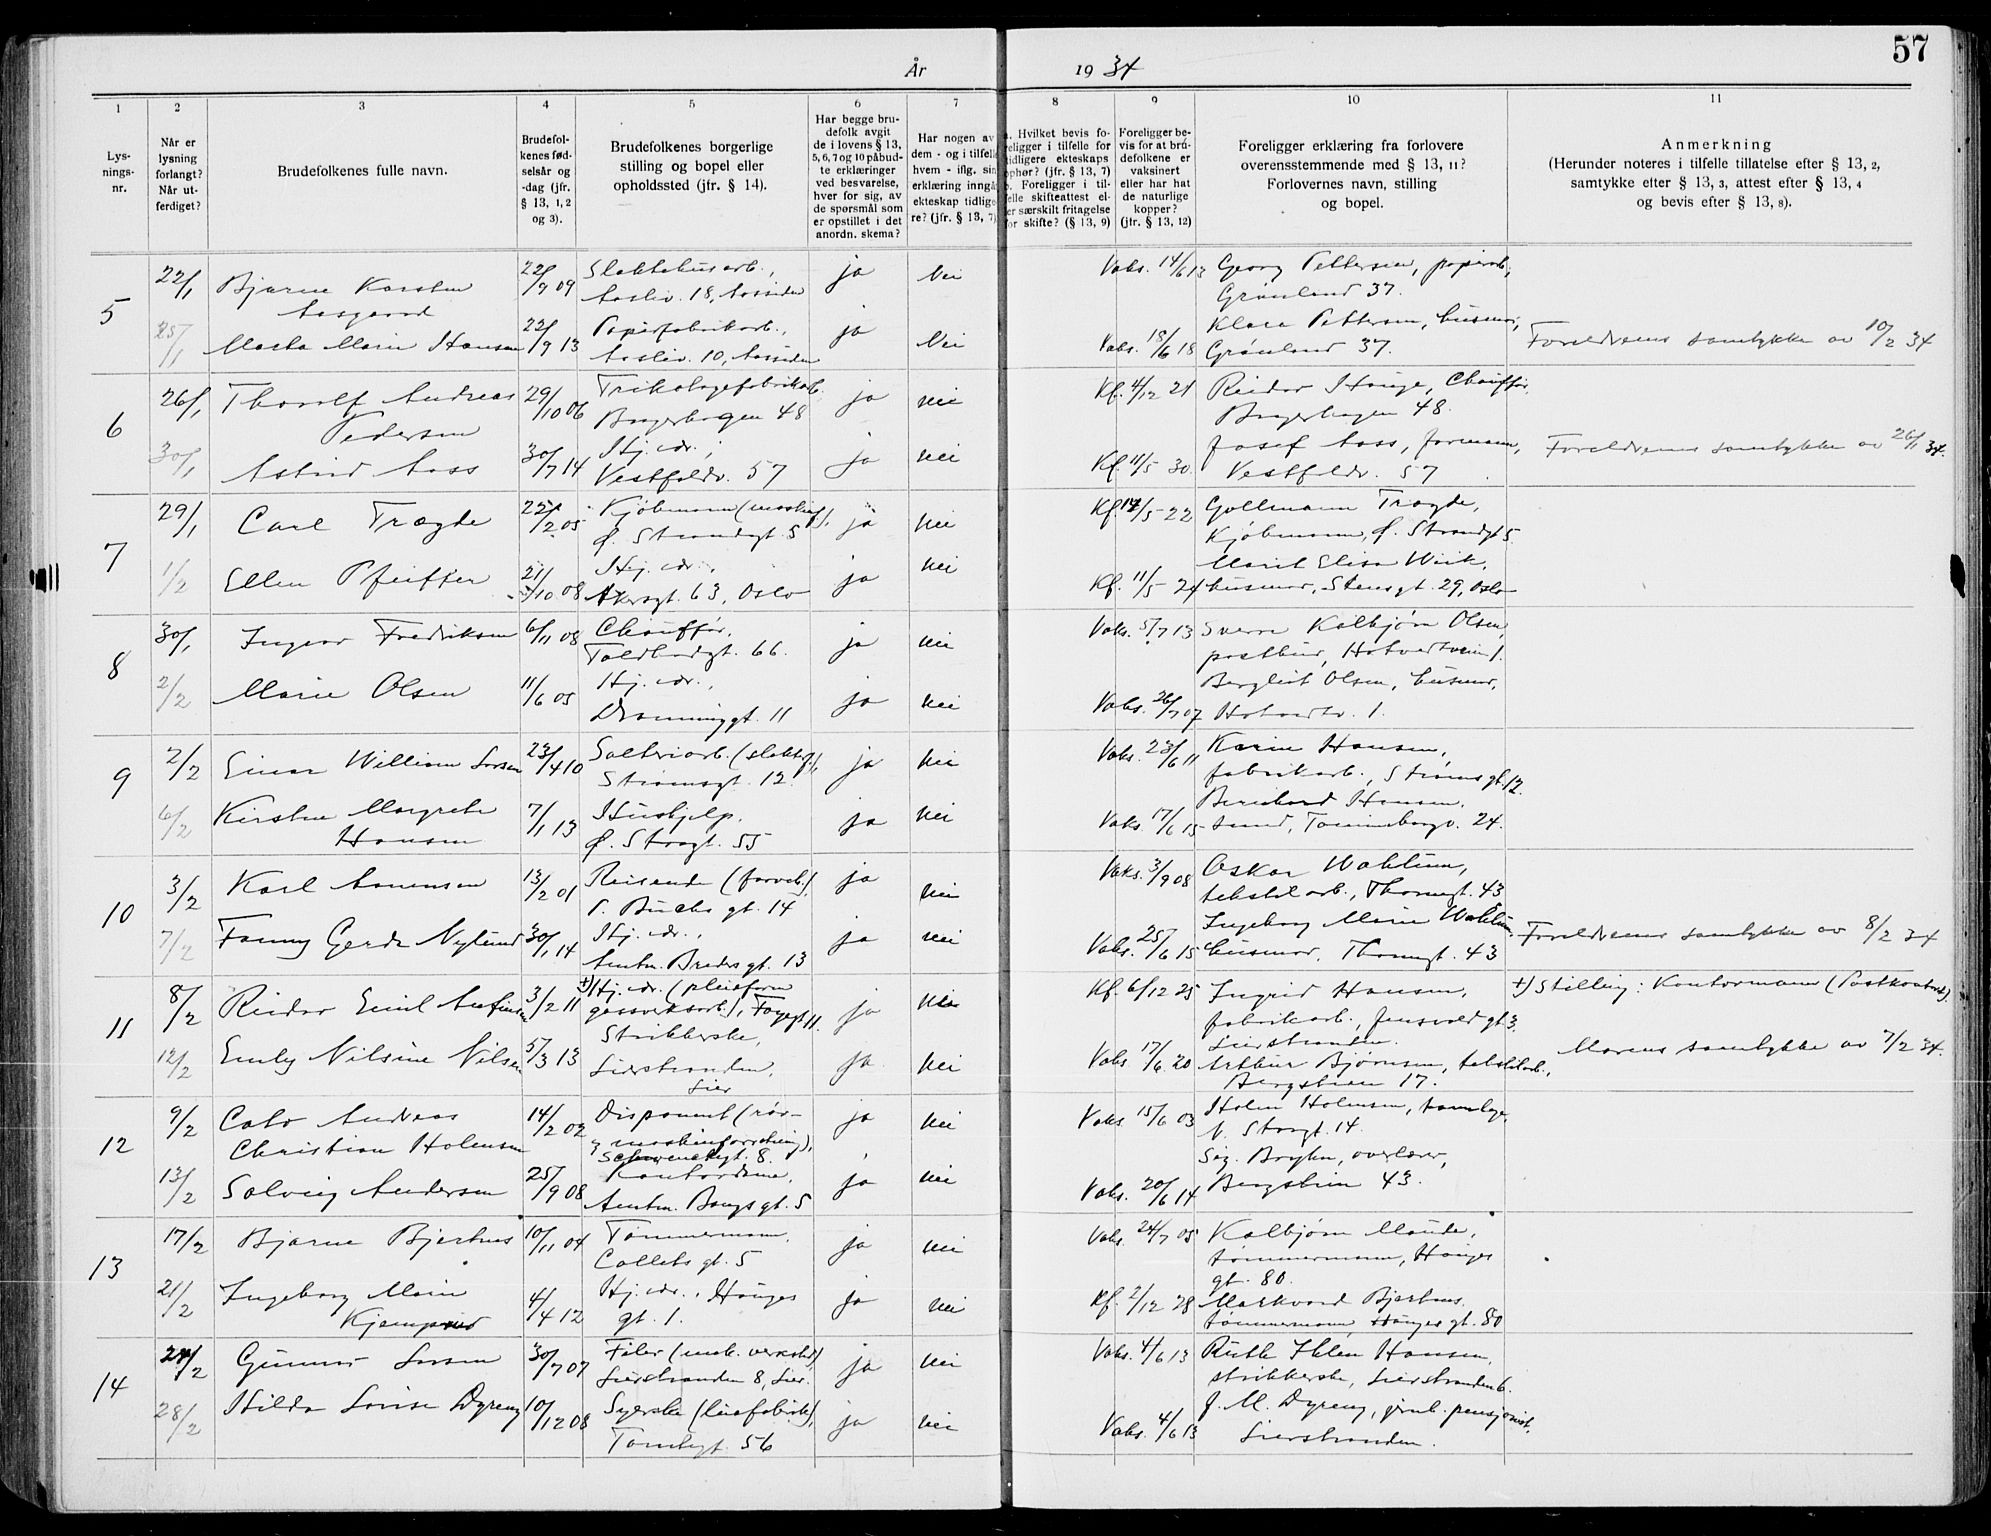 57
År 1934
1 2 3 4 5 6 7 8 9 10 11
Lysningsnr.
Når er lysning forlangt? Når utferdiget?
Brudefolkenes fulle navn.
Brudefolkenes fødselsår og -dag (jfr. § 13, 1, 2 og 3).
Brudefolkenes borgerlige stilling og bopel eller opholdssted (jfr. § 14).
Har begge brudefolk avgit de i lovens § 13, 5, 6, 7 og 10 påbudte erklæringer ved besvarelse, hver for sig, av de spørsmål som er opstillet i det anordn. skema?
Har nogen av dem - og i tilfelle hvem - iflg. sin erklæring inngå ekteskap tidligere? (jfr. § 13, 7)
a. Hvilket bevis foreligger i tilfelle for tidligere ekteskaps ophør? (jfr. § 13, 7)
b. Foreligger i tilfelle skifteattest eller særskilt fritagelse for skifte? (§ 13, 9)
Foreligger bevis for at brudefolkene er vaksinert eller har hat de naturlige kopper? (jfr. § 13, 12)
Foreligger erklæring fra forlovere overensstemmende med § 13, 11? Forlovernes navn, stilling og bopel.
Anmerkning
(Herunder noteres i tilfelle tillatelse efter § 13, 2, samtykke efter § 13, 3, attest efter § 13, 4 og bevis efter § 13, 8).
5 22/1 Bjarne Karsten Aasgaard 22/7 09 Slaktehusarb., Aasliv. 18, Aassiden ja Nei Vaks. 14/6 13 Georg Pettersen, papirarb., Grønland 37.
25/1 Marta Marie Hansen 22/9 13 Papirfabrikarb., Aasliv. 10, Aassiden ja Nei Vaks. 18/6 18 Klara Pettersen, husmor, Grønland 37. Foreldrenes samtykke av 10/2 34
6 26/1 Thoralf Andreas Pedersen 29/10 06 Trikotagefabrikarb. Bragerhagen 48 ja nei Kf. 4/12 21 Reidar Hauge, Chauffør, Bragerhagen 48.
30/1 Astrid Aass 30/7 14 Hj. vær., Vestfoldv. 57 ja nei Kf. 11/5 30. Josef Aass, formann, Vestfoldv. 57 Foreldrenes samtykke av 26/1 34.
7 29/1 Carl Trægde 22/2 05 Kjøbmann, Ø. Strandgt. 5 ja nei Kf. 14/5-22 Gollmann Trægde, Kjøbmann, Ø. Strandgt 5.
1/2 Ellen Pfeiffer 21/10 08 Hj. vær., Akersgt. 63, Oslo ja nei Kf. 11/5-24 Marit Elisa Wiik, husmor, Stensgt. 29, Oslo
8 30/1 Ingvar Fredriksen 6/11 08 Chauffør, Toldbodgt. 66. ja nei Vaks. 5/7 13 Sverre Kolbjørn Olsen, postbud, Hotvedtveien 1.
2/2 Marie Olsen 11/6 05 Hj. vær., Dronninggt. 11 ja nei Vaks. 26/7 07 Bergliot Olsen, husmor, Hotvedtv. 1.
9 2/2 Einar William Larsen 23/4 10 Salteriarb., Strømsgt. 12. ja nei Vaks. 23/6 11 Karin Hansen, fabrikarb., Strømsgt. 12.
6/2 Kirsten Margrethe Hansen 7/1 13 Hushjelp, Ø. Storgt. 55 ja nei Vaks. 17/6 15 Bernhard Hansen, smed, 24.
10 3/2 Karl Aanensen 13/2 01 Reisende, P. Buchs gt. 14 ja nei Vaks. 3/9 08 Oskar Wahlum, tekstilarb., Thornegt. 43
7/2 Fanny Gerda Nylund 30/1 14 Hj. vær., Amtm. Breders gt. 13 ja nei Vaks. 25/6 15 Ingeborg Marie Wahlum, husmor, Thornegt. 43 Foreldrenes samtykke av 8/2 34
11 8/2 Reidar Emil Anfinsen 3/2 11 +) Hj. vær., 11. ja Nei Kf. 6/12 25 Ingrid Hansen, fabrikarb., 3. Lierstranden. +) Stilling: Kontormann (Postkontoret).
12/2 Emly Nilsine Nilsen 5/3 13 Strikkerske, Lierstranden, Lier ja. nei Vaks 17/6. 20 Arthur Bjørnsen, tekstilarb., Bergstien 17. Morens samtykke av 7/2 34.
12 9/2 Cato Andreas Christian Holmsen 14/2 02 Disponent (rør- & maskinforretning), Schwenckegt. 8. ja nei Vaks 15/6 03 Holm Holmsen, tannlege, N. Storgt. 14.
13/2 Solveig Andersen 25/9 08 Kontordame, Amtm. Bangs gt. 5 ja nei Vaks. 20/6 14 Sig. Boyhn, overlærer, Bergstien 43.
13 17/2 Bjarne Bjerknes 10/11 04 Tømmermann, Colletts gt. 5 ja nei Vaks. 24/7 05 Kolbjørn Maude, tømmermann, Hauges gt. 80.
21/2 Ingeborg Marie 4/4 12 Hj. vær., Hauges gt. 1. ja nei Kf. 2/12 28 Markvard Bjerknes, tømmermann, Hauges gt. 80
14 24/2 Gunnar Larsen 30/7 07 Filer (mek. verksted), Lierstranden 8, Lier. ja nei Vaks. 4/6 13 Ruth Iklen Hansen, strikkerske, Lierstranden 6.
28/2 Hilda Lovise Dyreng 10/12 08 Syerske, Tomtegt. 56 ja nei Vaks. 4/6 13 J. M. Dyreng, jernb. pensjonist, Lierstranden.